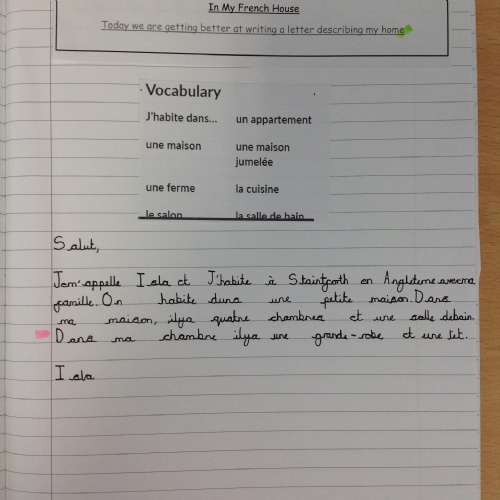 In My French House
Today we are getting better at writing a letter describing my home
Vocabulary
J'habite dans... un appartement
une maison une maison
jumelée
une ferme la cuisine
le salon la salle de bain
Salut,
Jem'appelle Isla et J'habite à Staintforth en Angleterre avecma
famille. On habite dans une petite maison. Dans
ma maison, ilya quatre chambres et une salle debain.
Dans ma chambre ilya une grande-robe et une lit.
Isla